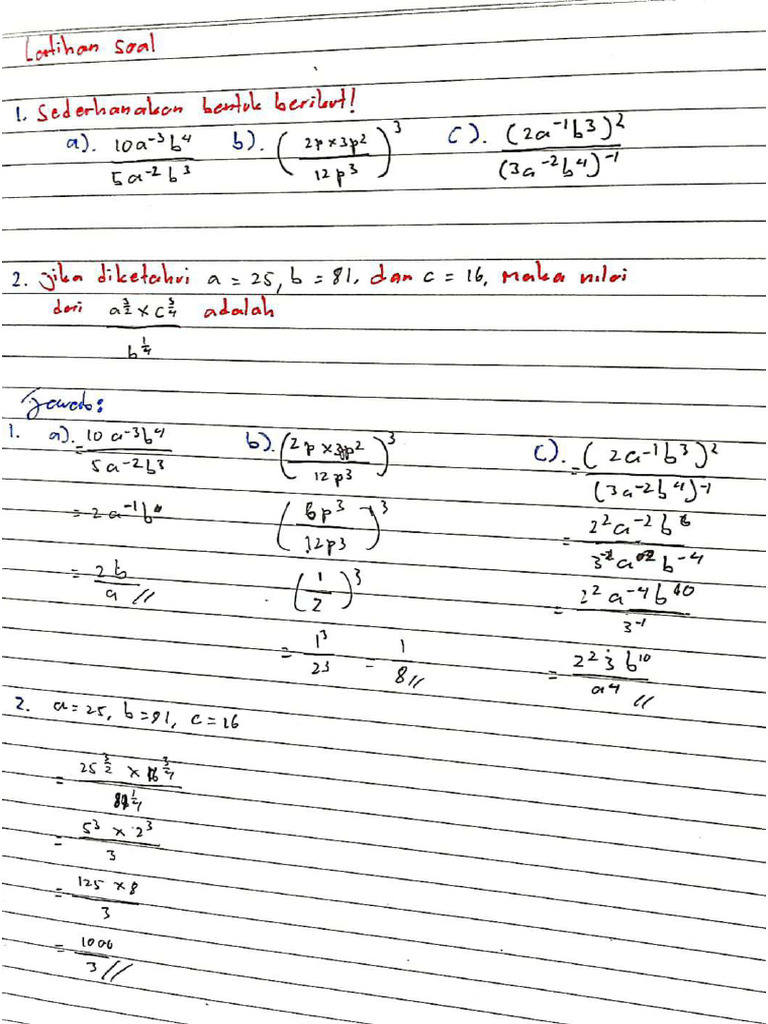 Latihan Soal
1. Sederhanakan bentuk berikut!
a). 10a⁻³b⁴ / 5a⁻²b³ b). (2p × 3p² / 12p³)³ c). (2a⁻¹b³)² / (3a⁻²b⁴)⁻¹
2. jika diketahui a = 25, b = 81, dan c = 16, maka nilai
dari a^(3/2) × c^(3/4) / b^(1/4) adalah
Jawab:
1. a). = 10a⁻³b⁴ / 5a⁻²b³
= 2a⁻¹b
= 2b / a //
b). (2p × 3p² / 12p³)³
(6p³ / 12p³)³
(1 / 2)³
= 1³ / 2³ = 1 / 8 //
c). = (2a⁻¹b³)² / (3a⁻²b⁴)⁻¹
= 2²a⁻²b⁶ / 3⁻¹a²b⁻⁴
= 2²a⁻⁴b¹⁰ / 3⁻¹
= 2² 3 b¹⁰ / a⁴ //
2. a = 25, b = 81, c = 16
= 25^(3/2) × 16^(3/4) / 81^(1/4)
= 5³ × 2³ / 3
= 125 × 8 / 3
= 1000 / 3 //